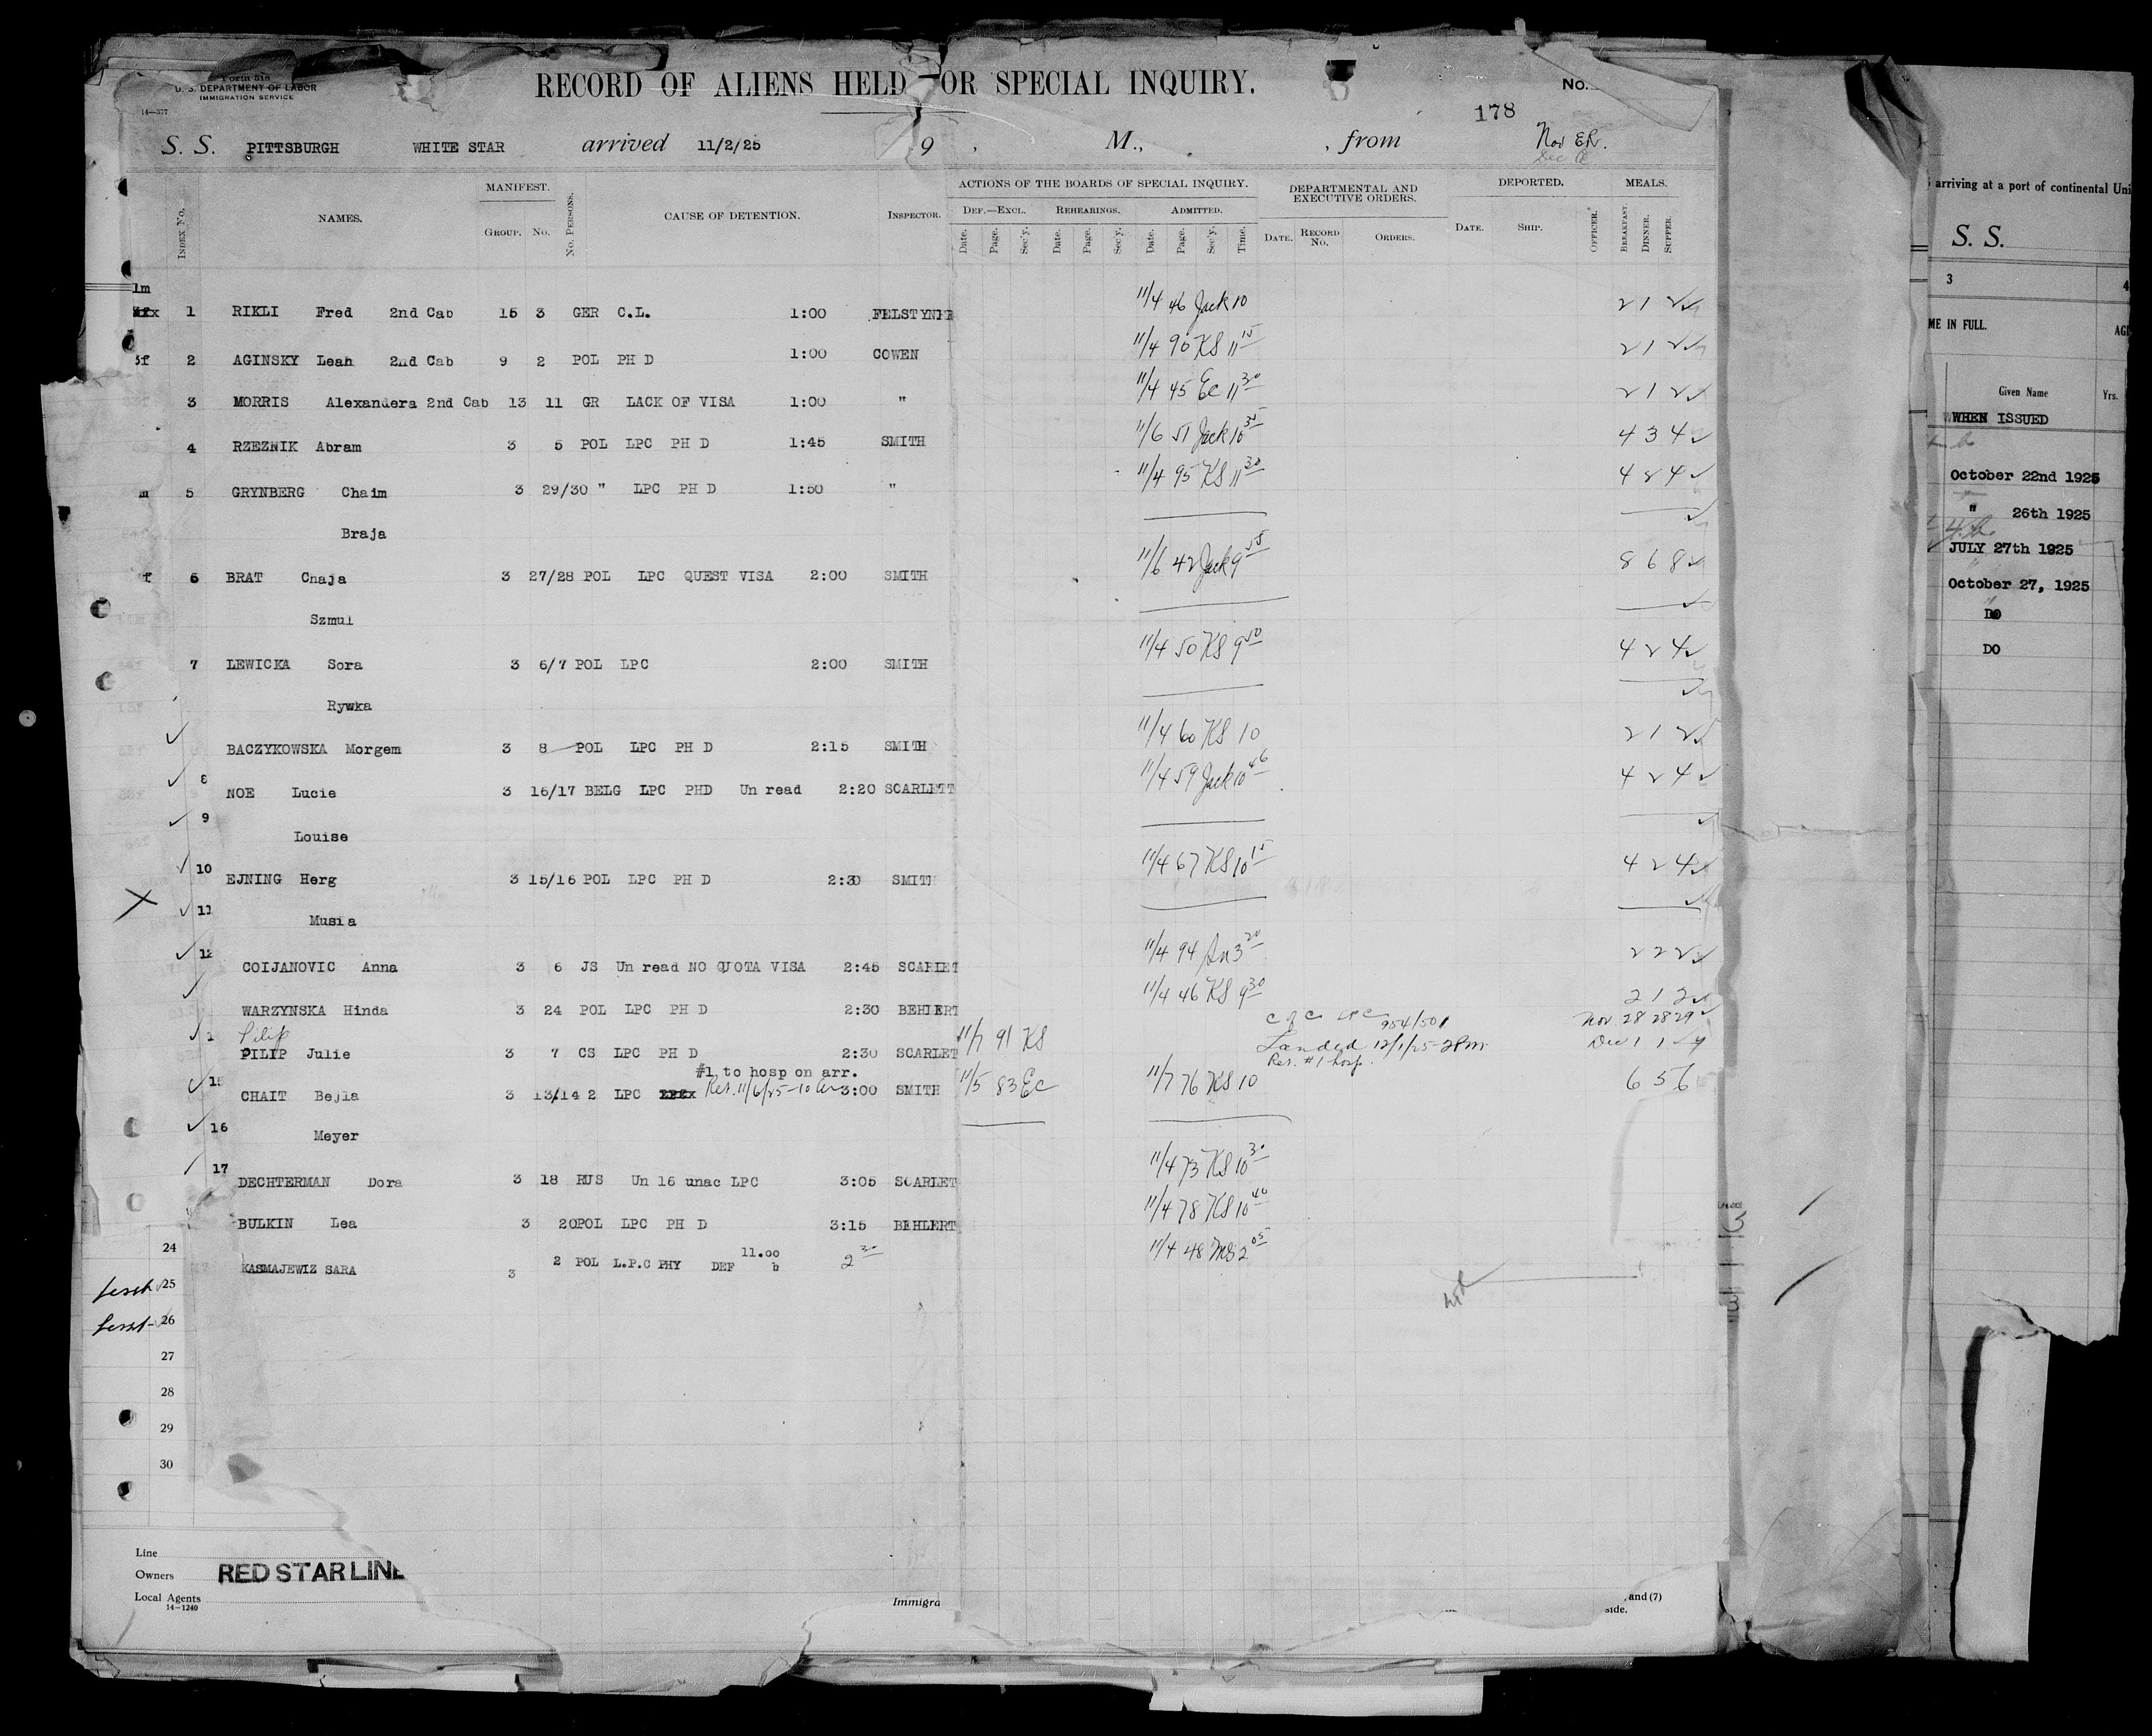 Form 518
U. S. DEPARTMENT OF LABOR
IMMIGRATION SERVICE
14—377
RECORD OF ALIENS HELD OR SPECIAL INQUIRY.
No.
178
S. S. PITTSBURGH WHITE STAR arrived 11/2/25 9 , M., , from Nov ER.
INDEX No. NAMES. MANIFEST. GROUP. No. No. PERSONS. CAUSE OF DETENTION. INSPECTOR.
ACTIONS OF THE BOARDS OF SPECIAL INQUIRY. DEF.—EXCL. REHEARINGS. ADMITTED.
Date. Page. Sec'y. Date. Page. Sec'y. Date. Page. Sec'y. Time.
DEPARTMENTAL AND EXECUTIVE ORDERS. DATE. RECORD No. ORDERS.
DEPORTED. DATE. SHIP. OFFICER. MEALS. BREAKFAST. DINNER. SUPPER.
1m
1 RIKLI Fred 2nd Cab 15 3 GER C.L. 1:00 FELSTYNER 11/4 46 Jack 10 2 1 2
3f 2 AGINSKY Leah 2nd Cab 9 2 POL PH D 1:00 COWEN 11/4 90 KS 11 15 2 1 2
3 MORRIS Alexandera 2nd Cab 13 11 GR LACK OF VISA 1:00 " 11/4 45 Ec 11 30 2 1 2
4 RZEZNIK Abram 3 5 POL LPC PH D 1:45 SMITH 11/6 51 Jack 10 35 4 3 4
m 5 GRYNBERG Chaim 3 29/30 " LPC PH D 1:50 " 11/4 95 KS 11 30 4 2 4
Braja
f 6 BRAT Chaja 3 27/28 POL LPC QUEST VISA 2:00 SMITH 11/6 42 Jack 9 55 8 6 8
Szmul
7 LEWICKA Sora 3 6/7 POL LPC 2:00 SMITH 11/4 50 KS 9 50 4 2 4
Rywka
BACZYKOWSKA Morgem 3 8 POL LPC PH D 2:15 SMITH 11/4 60 KS 10 2 1 2
8 NOE Lucie 3 16/17 BELG LPC PHD Un read 2:20 SCARLETT 11/4 59 Jack 10 46 4 2 4
9
Louise
10 EJNING Herg 3 15/16 POL LPC PH D 2:30 SMITH 11/4 67 KS 10 15 4 2 4
11
Musia
12 COIJANOVIC Anna 3 6 JS Un read NO QUOTA VISA 2:45 SCARLET 11/4 94 3 20 2 2 2
WARZYNSKA Hinda 3 24 POL LPC PH D 2:30 BEHLERT 11/4 46 KS 9 30 2 1 2
Pilip 954/501 Nov 28 28 29
PILIP Julie 3 7 CS LPC PH D 2:30 SCARLET 11/7 91 KS Landed 12/1/25-2Pm. Dec 1 1
#1 to hosp on arr. Res. #1 hosp.
15 CHAIT Bejla 3 13/14 2 LPC Res. 11/6/25-10 3:00 SMITH 11/5 83 Ec 11/7 76 KS 10 6 5 6
16
Meyer
17 DECHTERMAN Dora 3 18 RUS Un 16 unac LPC 3:05 SCARLET 11/4 73 KS 10 30
BULKIN Lea 3 20 POL LPC PH D 3:15 BEHLERT 11/4 78 KS 10 40
KASMAJEWIZ SARA 3 2 POL L.P.C PHY DEF 11.00 b 2 30 11/4 48 MS 2 05
24
25
26
27
28
29
30
Line
Owners RED STAR LINE
Local Agents
14—1240
Immigra
, and (7)
side.
arriving at a port of continental Uni
S. S.
3 4
ME IN FULL. AGE
Given Name Yrs.
WHEN ISSUED
October 22nd 1925
" 26th 1925
JULY 27th 1925
October 27, 1925
DO
DO